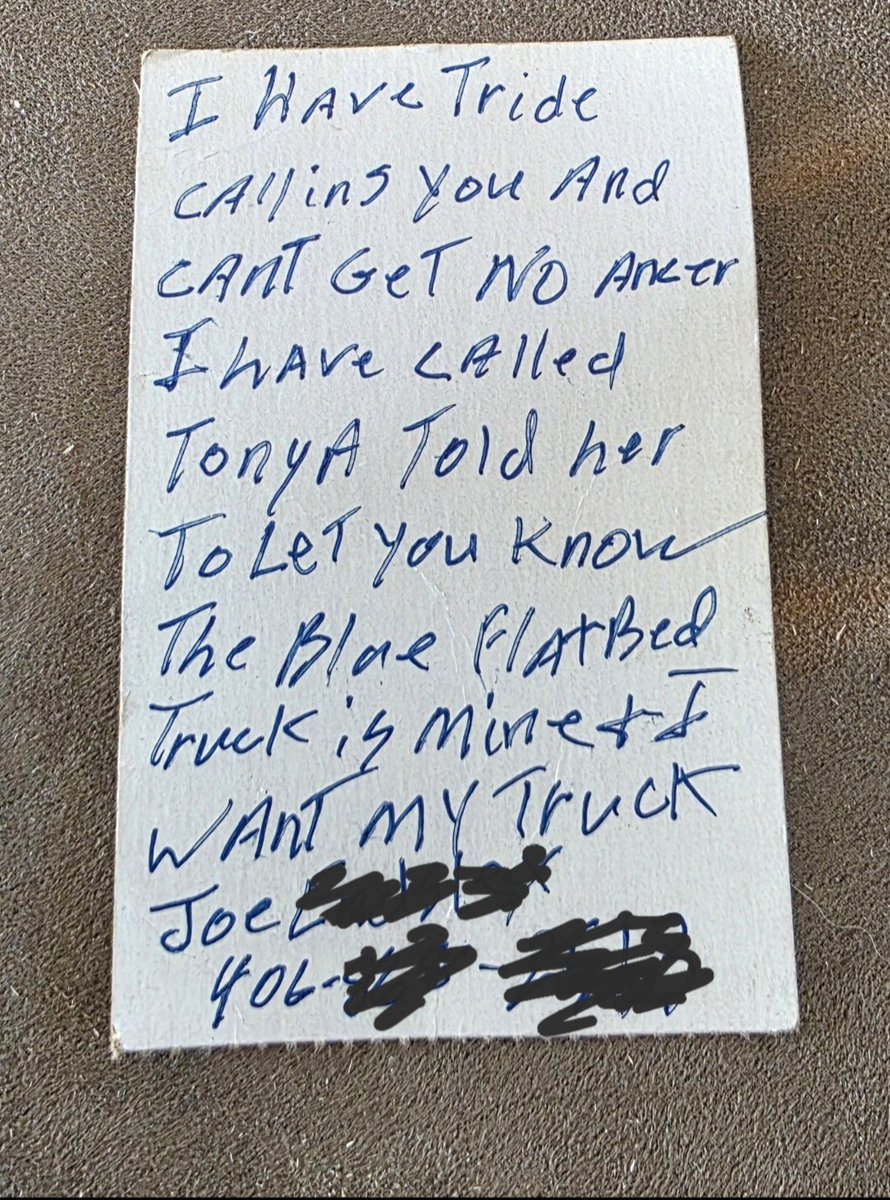 I HAve Tride
CAllins you And
CAnT GeT NO Ancer
I hAve cAlled
TonyA Told her
To LeT you know
The Blue FlatBed
Truck is Mine & I
WAnT My Truck
Joe
406-